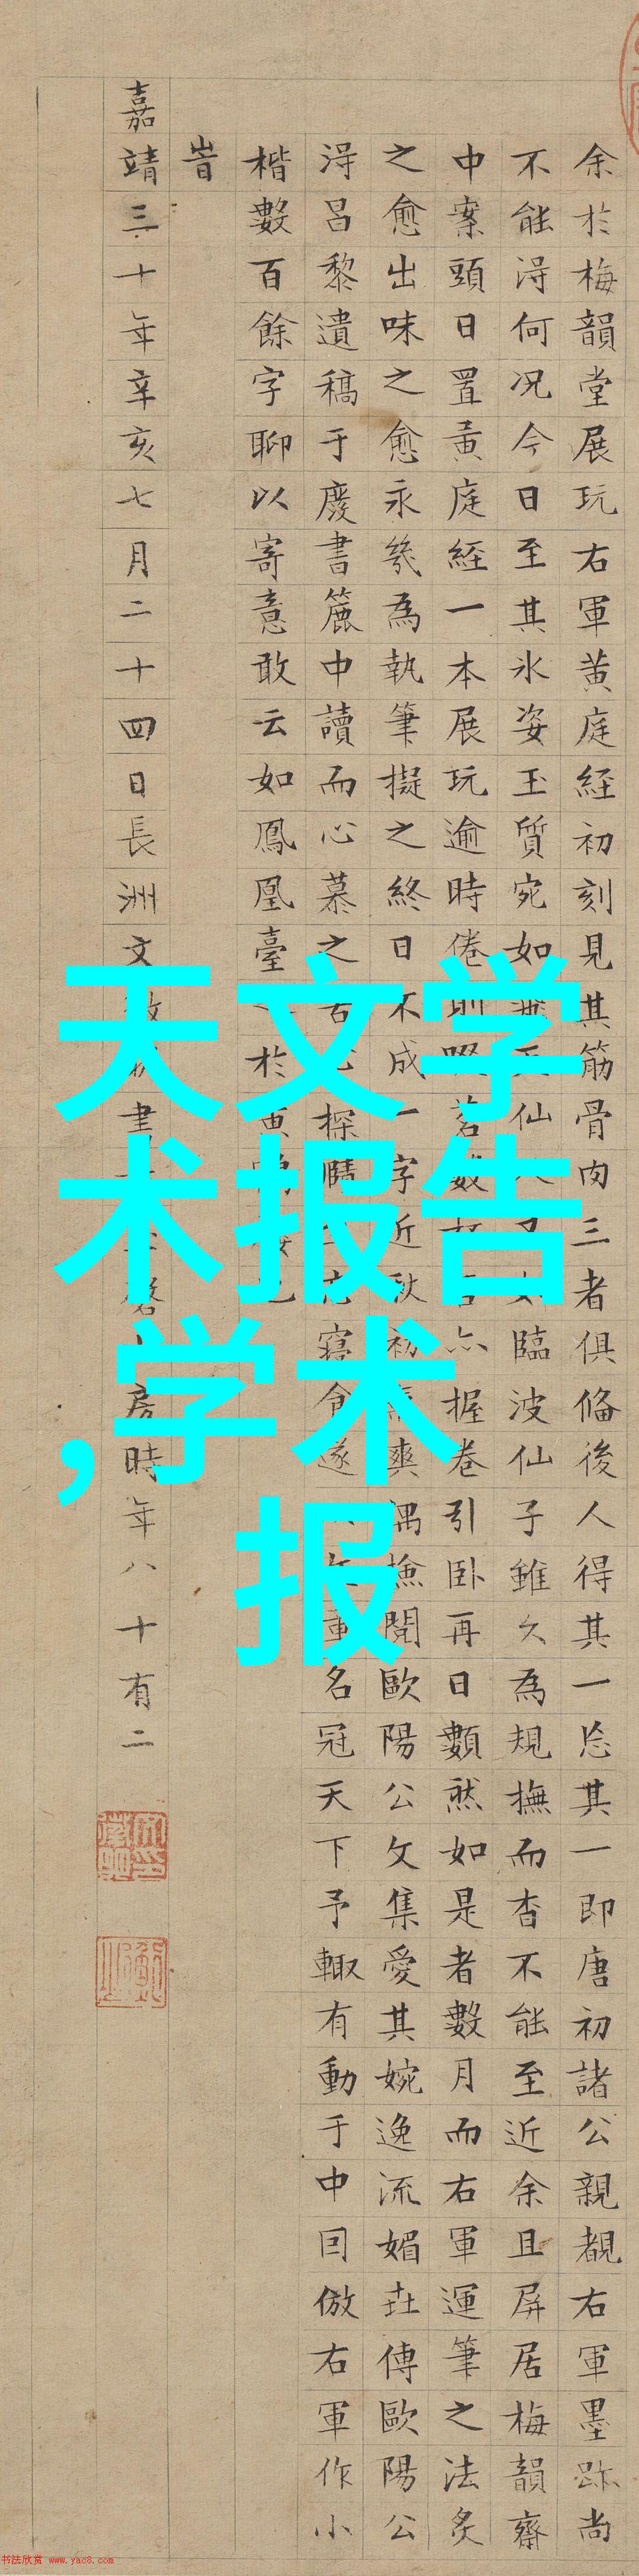 余於梅韻堂展玩右軍黃庭経初刻見其筋骨肉三者俱俻後人得其一忘其一即唐初諸公親覩右軍墨跡尚
不能淂何況今日至其氷姿玉質宛如仙臨波仙子雖久為規撫而杳不能至近余且屏居梅韻齋
中案頭日置黃庭経一本展玩逾時倦則啜茗數握卷引卧再日數然如是者數月而右軍運筆之法炙
之愈出味之愈永幾為執筆擬之終日不成一字近秋初爽偶撿閱歐陽公文集愛其婉逸流媚世傳歐陽公
淂呂黎遺稿于廢書簏中讀而心慕之探賾寢食遂名冠天下予輙有動于中囙倣右軍作小
楷數百餘字聊以寄意敢云如鳳凰臺於黃
旹
嘉靖三十年辛亥七月二十四日長洲文書房時年八十有二
天文学
术报告
,学术
报
书法欣赏 www.yac8.com